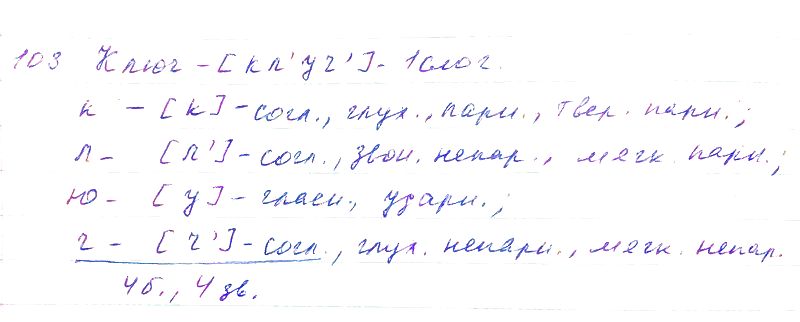 103 Ключ - [кл'уч'] - 1 слог.
к - [к] - согл., глух., парн., твер. парн.;
л - [л'] - согл., звон. непар., мягк. парн.;
ю - [у] - гласн., ударн.;
ч - [ч'] - согл., глух. непарн., мягк. непар.
4 б., 4 зв.